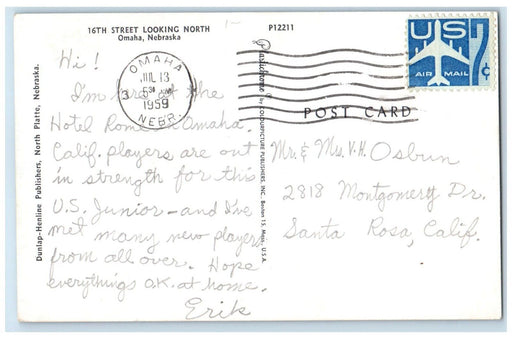 16TH STREET LOOKING NORTH
Omaha, Nebraska
P12211
Dunlap-Henline Publishers, North Platte, Nebraska.
Plastichrome by COLOURPICTURE PUBLISHERS, INC. Boston 15, Mass., U.S.A.
POST CARD
US 7¢
AIR MAIL
OMAHA
JUL 13
1959
NEBR.
Hi!
I'm here at the
Hotel Rome in Omaha.
Calif. players are out
in strength for this
U.S. Junior - and I've
met many new players
from all over. Hope
everythings O.K. at home.
Erik
Mr. & Mrs. V.H. Osbun
2818 Montgomery Dr.
Santa Rosa, Calif.